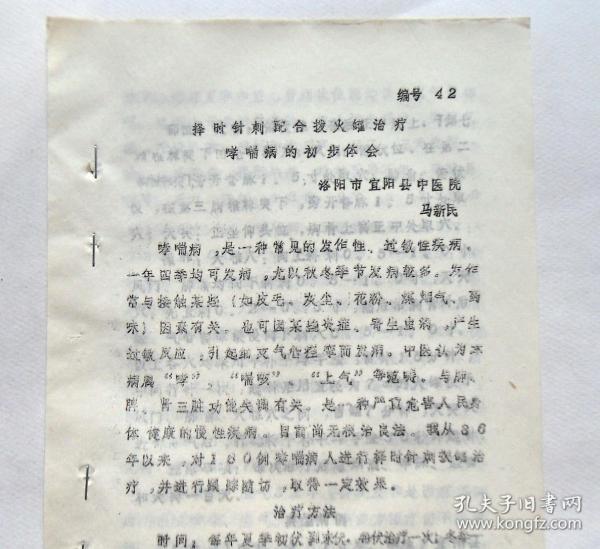 编号 42
择时针刺配合拔火罐治疗
哮喘病的初步体会
洛阳市宜阳县中医院
马新民
哮喘病，是一种常见的发作性、过敏性疾病，
一年四季均可发病，尤以秋冬季节发病较多。发作
常与接触某些（如皮毛、灰尘、花粉、煤烟气、药
味）因素有关。也可因某些炎症、寄生虫病，产生
过敏反应，引起细支气管痉挛而发病。中医认为本
病属“哮”，“喘咳”“上气”等范畴。与肺、
脾、肾三脏功能失调有关，是一种严重危害人民身
体健康的慢性疾病。目前尚无根治良法。我从86
年以来，对180例哮喘病人进行择时针刺拔罐治
疗，并进行跟踪随访，取得一定效果。
治疗方法
时间：每年夏季初伏到末伏，每伏治疗一次；冬季
孔夫子旧书网
www.kongfz.com